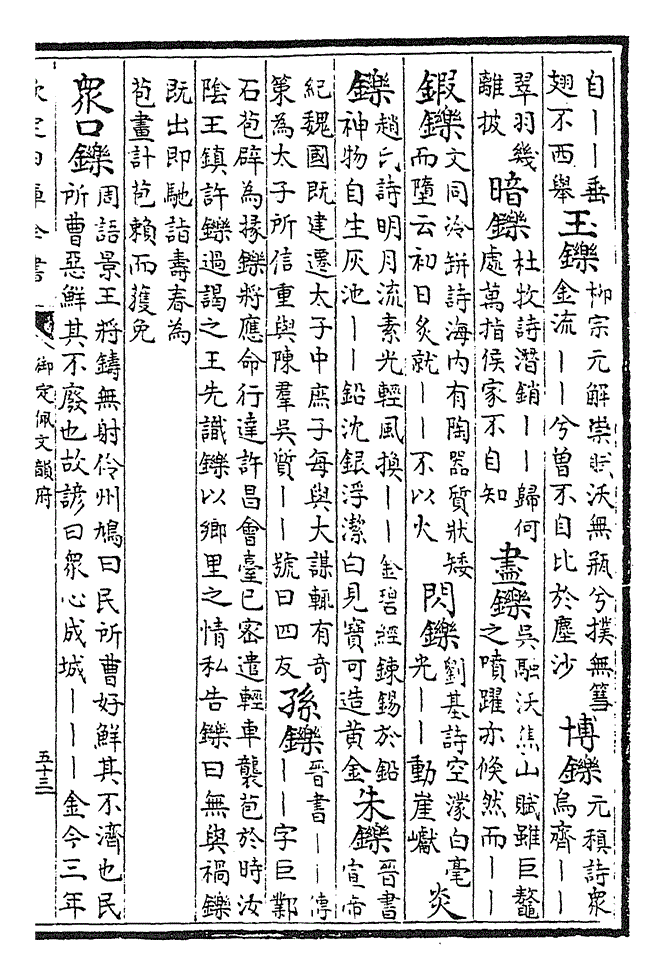 自——垂翅不西舉 王鑠 柳宗元解祟賦沃無瓶兮撲無篲金流——兮曾不自比於塵沙 博鑠 元稹詩衆烏齊——
翠羽幾離披 暗鑠 杜牧詩潛銷——歸何處萬指侯家不自知 盡鑠 吳融沃焦山賦雖巨鼇之噴躍亦倏然而——
鍜鑠 文同冷缾詩海内有陶器質狀矮而墮云初日炙就——不以火 閃鑠 劉基詩空濛白毫光——動崖巘 炎
鑠 趙氏詩明月流素光輕風換—— 金碧經鍊錫於鉛神物自生灰池——鉛沈銀浮潔白見寶可造黄金 朱鑠 晉書宣帝
紀魏國既建遷太子中庶子每與大謀輒有奇策為太子所信重與陳羣吳質——號曰四友 孫鑠 晉書——傳——字巨鄴
石苞辟為掾鑠將應命行達許昌會臺已密遣輕車襲苞於時汝陰王鎮許鑠過謁之王先識鑠以鄉里之情私告鑠曰無與禍鑠
既出即馳詣壽春為苞畫計苞賴而獲免
衆口鑠 周語景王將鑄無射伶州鳩曰民所曹好鮮其不濟也民所曹惡鮮其不廢也故諺曰衆心成城———金今三年
欽定四庫全書
御定佩文韻府
五十三